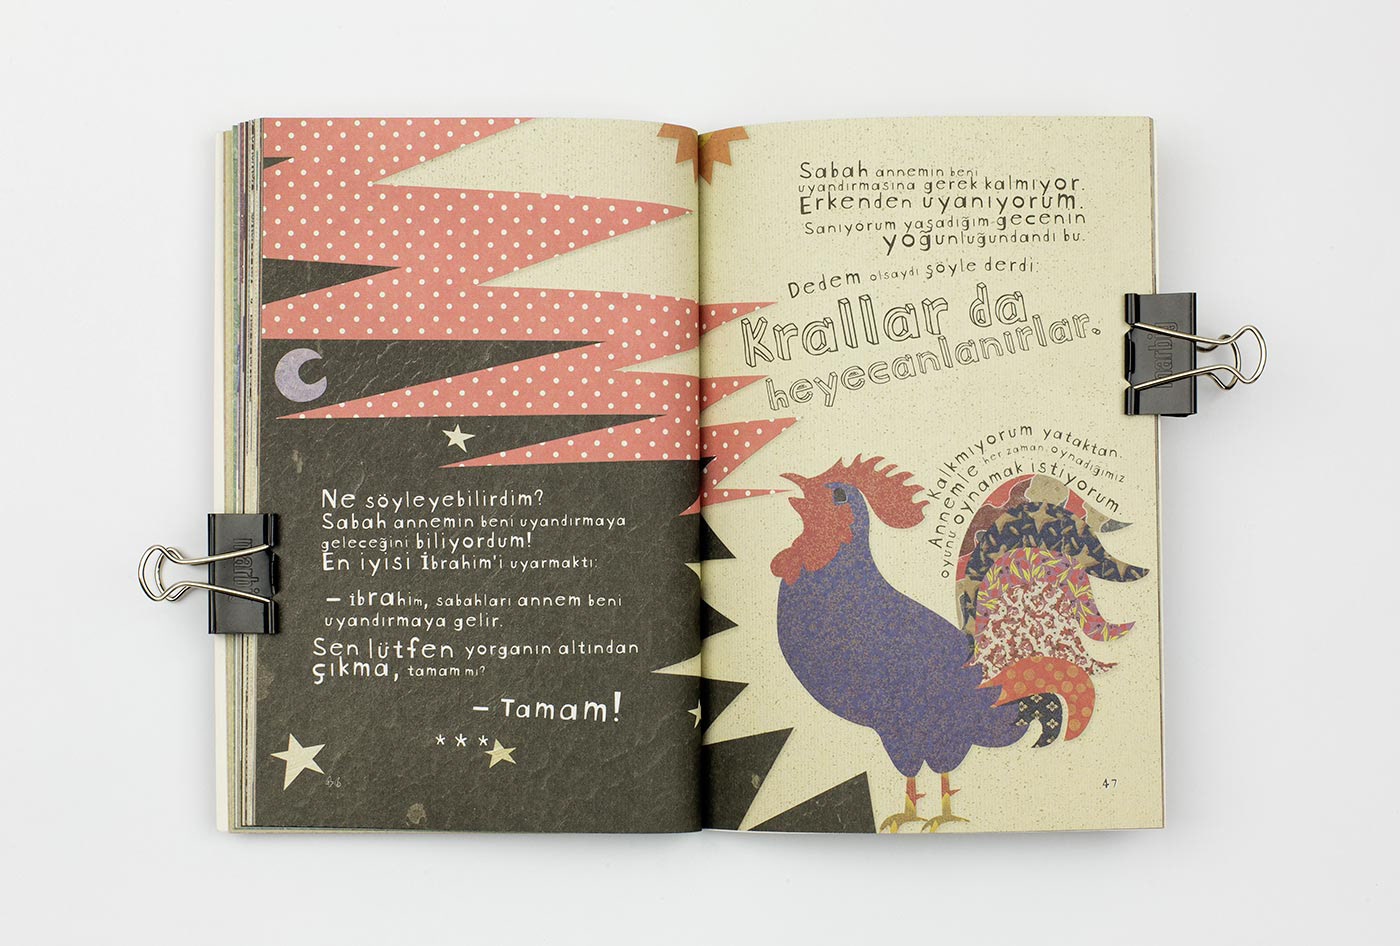 Ne söyleyebilirdim?
Sabah annemin beni uyandırmaya
geleceğini biliyordum!
En iyisi İbrahim'i uyarmaktı:
– İbrahim, sabahları annem beni
uyandırmaya gelir.
Sen lütfen yorganın altından
çıkma, tamam mı?
– Tamam!
***
46
Sabah annemin beni
uyandırmasına gerek kalmıyor.
Erkenden uyanıyorum.
Sanıyorum yaşadığım gecenin
yoğunluğundandı bu.
Dedem olsaydı şöyle derdi:
Krallar da
heyecanlanırlar.
Kalkmıyorum yataktan.
Annemle her zaman oynadığımız
oyunu oynamak istiyorum.
47
marbig
marbig